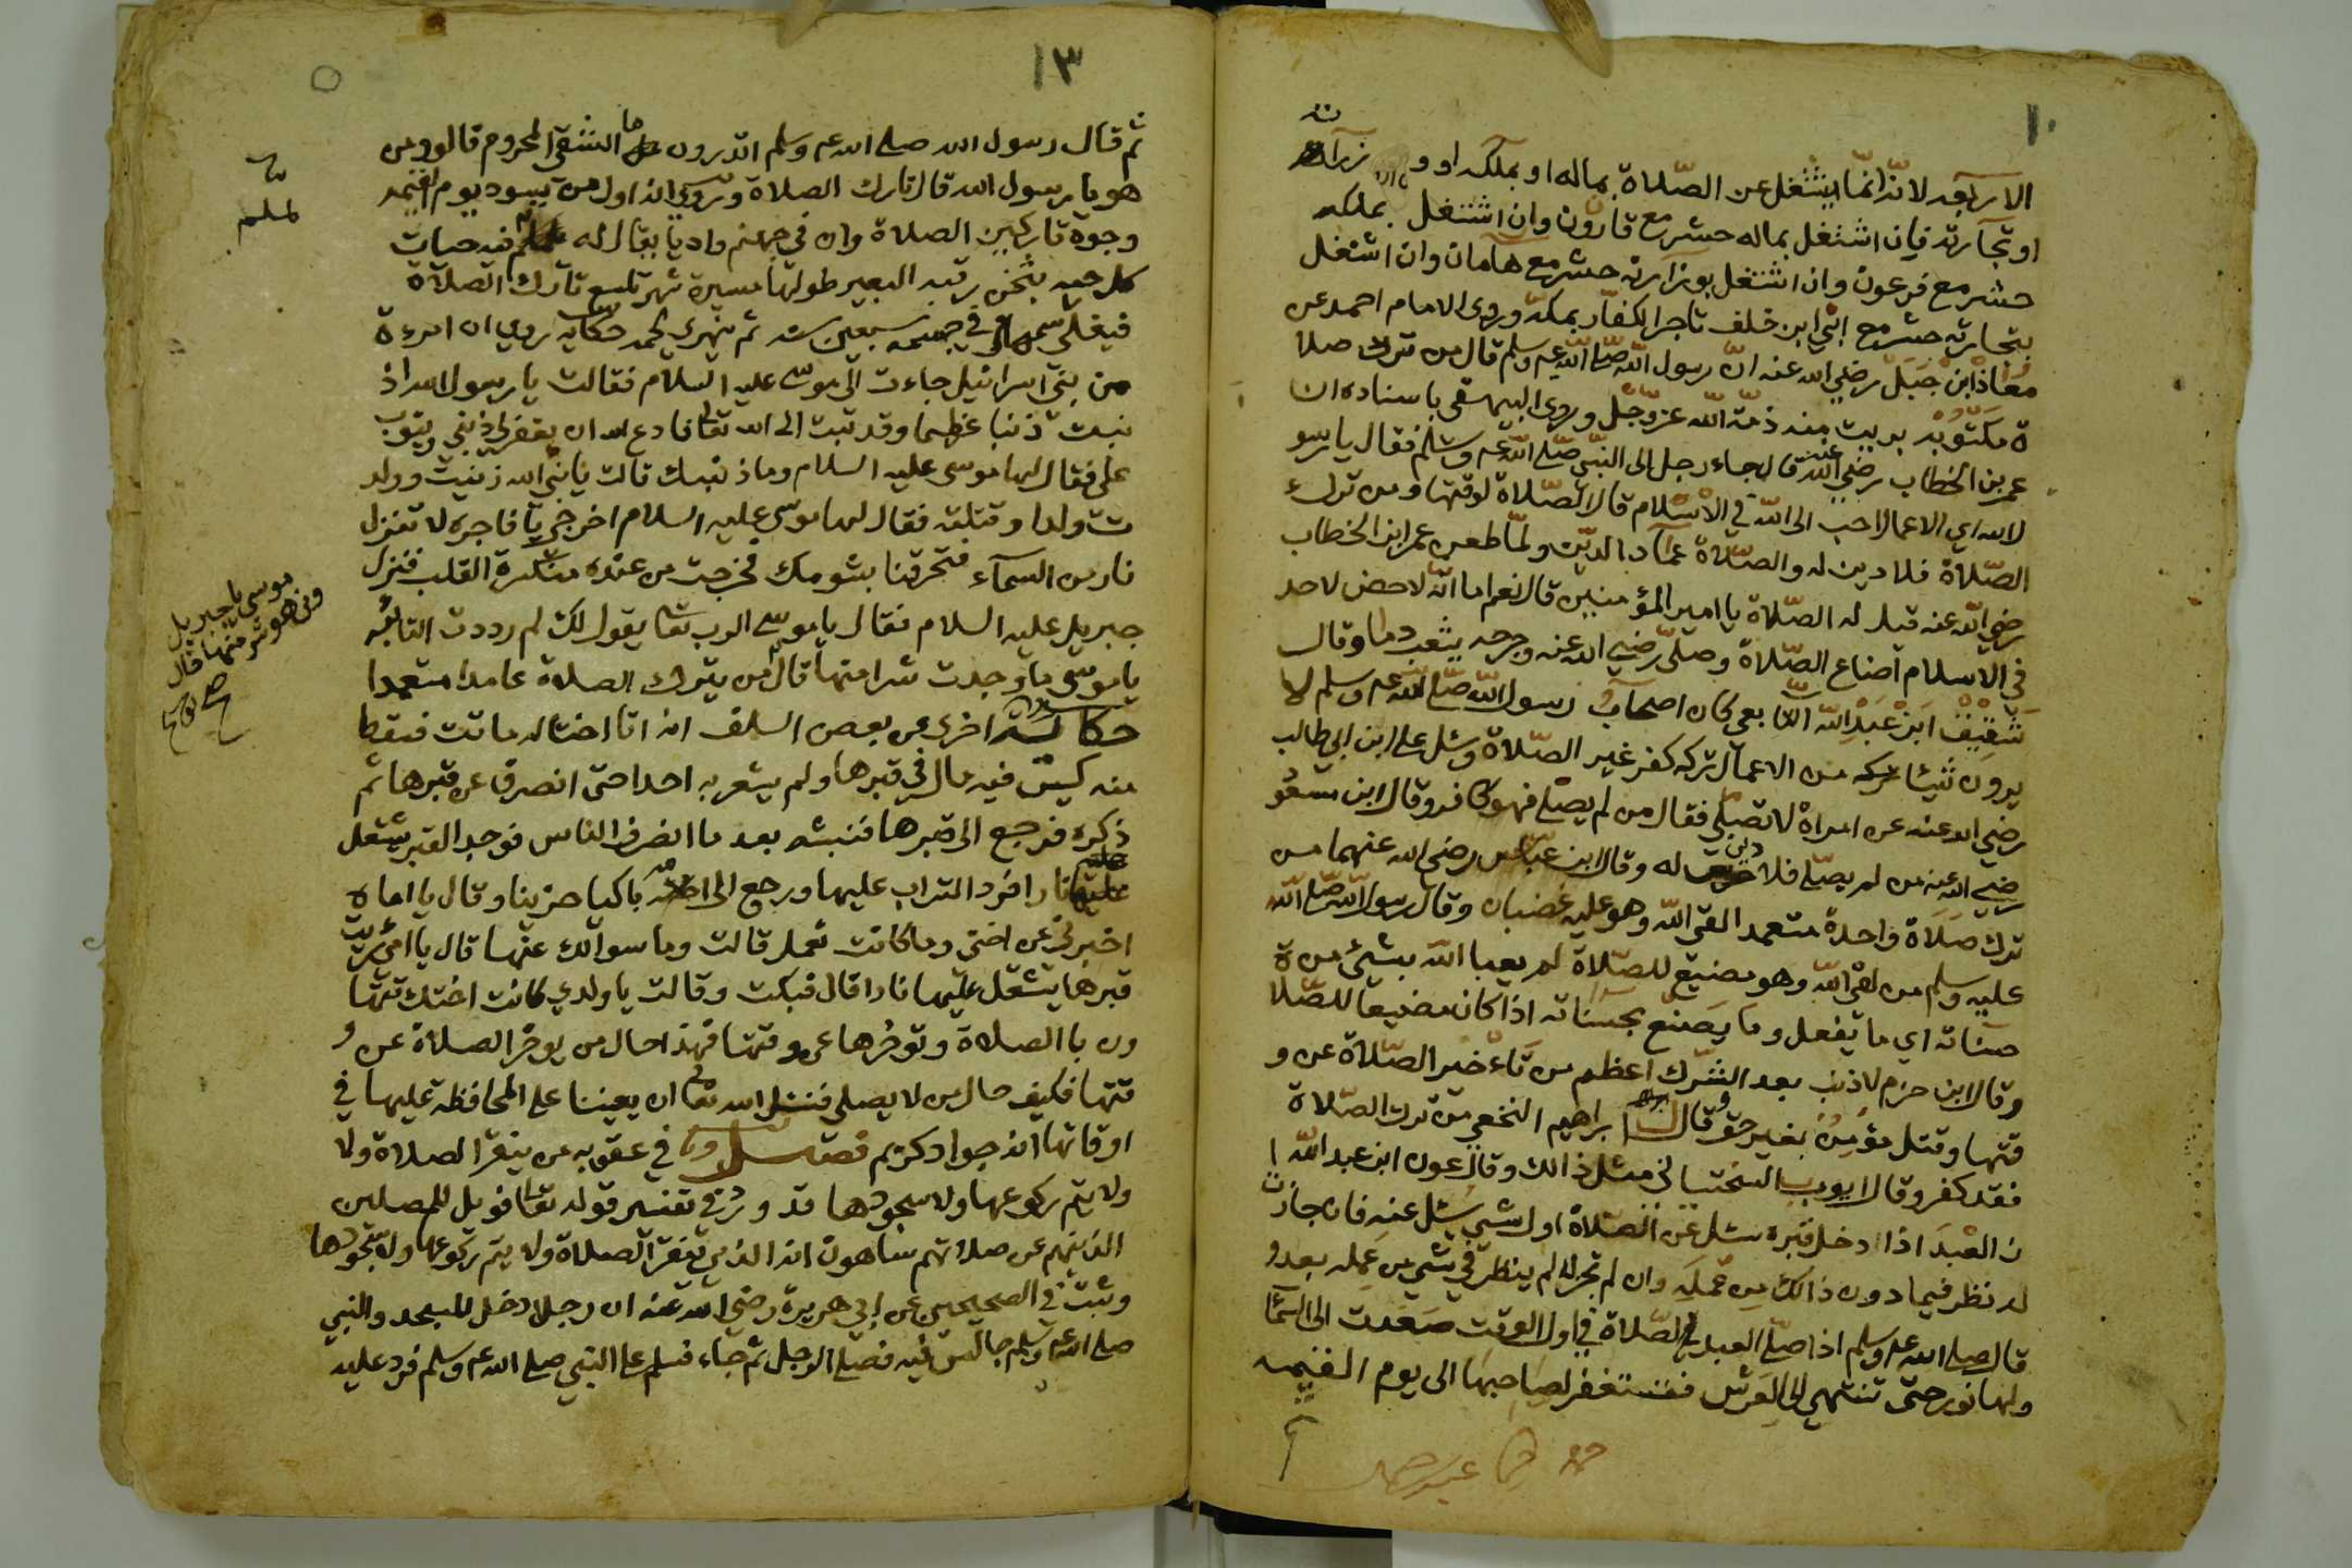 ١٠
الاربعه لانه انما يشتغل عن الصّلاة بماله او بملكه او وزرآته
او تجآرته فان اشتغل بماله حشر مع قارون وان اشتغل بملكه
حشر مع فرعون وان اشتغل بوزآرته حشر مع هآمان وان اشتغل
بتجارته حشر مع ابي ابن خلف تاجر الكفّار بمكة وروى الامام احمد عن
مُعَاذ ابن جَبَل رضي الله عنه انّ رسول الله صلى الله عم وسلم قال من ترك صلا
ة مكتوبة بريت منه ذمّة الله عزّ وجلّ وروى البيهقي باسناده ان
عمر بن الخطاب رضي الله عنه قال جاء رجل الى النبّي صلى الله عم وسلم فقال يا رسو
ل الله اي الاعمال احب الى الله في الاسلام قال الصّلاة لوقتها ومن ترك
الصّلاة فلا دين له والصّلاة عمآد الديّن ولمّا طعن عمر ابن الخطاب
رضي الله عنه قيل له الصّلاة يا امير المؤمنين قال نعم اما انّه لا حض لاحد
في الاسلام اضاع الصّلاة وصلّى رضي الله عنه وجرحه يثعب دما وقال
شَقِيقْ ابن عَبْد الله التّابعي كان اصحآب رسول الله صلى الله عم وسلم لا
يرون شيئا من الاعمال تركه كفر غير الصّلاة وسئل علي ابن ابي طالب
رضي الله عنه عن امراة لا تصلّي فقال من لم يصلّ فهو كافر وقال ابن مسعو
رضي الله عنه من لم يصلّ فلا دين له وقال ابن عبّاس رضي الله عنهما من
ترك صَلَاة واحدة متعمد القي الله وهو عليه غضبان وقال رسول الله صلى الله
عليه وسلم من لقي الله وهو مضيّع للصّلاة لم يعبا الله بشيء من ة
حسَناته اي ما يفعل وما يَصنع بحسَناته اذا كان مضيعا للصّلا
وقال ابن حزم لا ذنب بعد الشّرك اعظم من تَاءخير الصّلاة عن و
قتها وقتل مؤمن بغير حق وقال ابراهيم النخعي من ترك الصّلاة
فقد كفر وقال ايوب السختياني مثل ذالك وقال عون ابن عبد الله ا
ن العبْدَ اذا ادخل قبره سئل عن الصّلاة اول شيي يسئل عنه فان جازت
له نظر فيما دون ذالك من عَمَله وان لم تجز له لم ينظر في شيي من عمله بعد و
قال صلى الله عم وسلم اذا صلّى العبد الصّلاة في اول الوقت صَعَدت الى السّمَا
ولها نور حتى تنتهي الى العَرش فتستغفر لصاحبها الى يوم القيمه
١٣
ثم قال رسول الله صلى الله عم وسلم اتدرون ما الشقي المحروم قالوا ومن
هو يا رسول الله قال تارك الصلاة وروي انه اول من يسود يوم القيمه
وجوه تاركين الصلاة وان في جهنم واديا يقال له لملم فيه حيات
كل حيه بثخن رقبه البعير طولها مسيرة شهر تلسع تآرك الصلآة
فيغلي سمها في جسمه سبعين سنه ثم يتهرى لحمه حكايه روي ان امرءة
من بني اسرائيل جاءت الى موسى عليه السلام فقالت يا رسول الله اذ
نبت ذنبا عظيما وقد تبت الى الله تعالى فادع الله ان يغفر لي ذنبي ويتوب
علي فقال لها موسى عليه السلام وما ذنبك قالت يا نبي الله زنيت وولد
ت ولدا وقتلته فقال لها موسى عليه السلام اخرجي يا فاجره لا تنزل
نار من السمآء فتحرقنا بشومك فخرجت من عنده منكسرة القلب فنزل
جبريل عليه السلام فقال يا موسى الرب تعالى يقول لك لم رددت التائبه
يا موسى ما وجدت شرا منها قال من يترك الصلاة عامدا متعمدا
حكاية اخرى عن بعض السلف انه اتا اختاله ماتت فسقط
منه كيس فيه مال في قبرها ولم يشعر به احدا حتى انصرف عن قبرها ثم
ذكره فرجع الى قبرها فنبشه بعد ما انصرف الناس فوجد القبر يشتعل
عليها نارا فرد التراب عليها ورجع الى امه باكيا حزينا وقال يا اماه
اخبرني عن اختي وما كانت تعمل قالت وما سوالك عنها قال يا امي رايت
قبرها يشتعل عليها نارا قال فبكت وقالت يا ولدي كانت اختك تتها
ون با الصلاة وتوخرها عن وقتها فهذا حال من يوخر الصلاة عن و
قتها فكيف حال من لا يصلي فنسئل الله تعالى ان يعيننا على المحافظة عليها في
اوقاتها انه جواد كريم فصل في عقوبه من ينقر الصلاة ولا
ولا يتم ركوعها ولا سجودها قد ورد في تفسير قوله تعالى فويل للمصلين
الذينهم عن صلاتهم ساهون انه الذي ينقر الصلاة ولا يتم ركوعها ولا سجودها
وثبت في الصحيحين عن ابي هريرة رضي الله عنه ان رجلا دخل المسجد والنبي
صلى الله عم وسلم جالس فيه فصلى الرجل ثم جاء فسلم على النبي صلى الله عم وسلم فرد عليه
لملم
موسى يا جبريل
ومن هو شر منها قال
صح